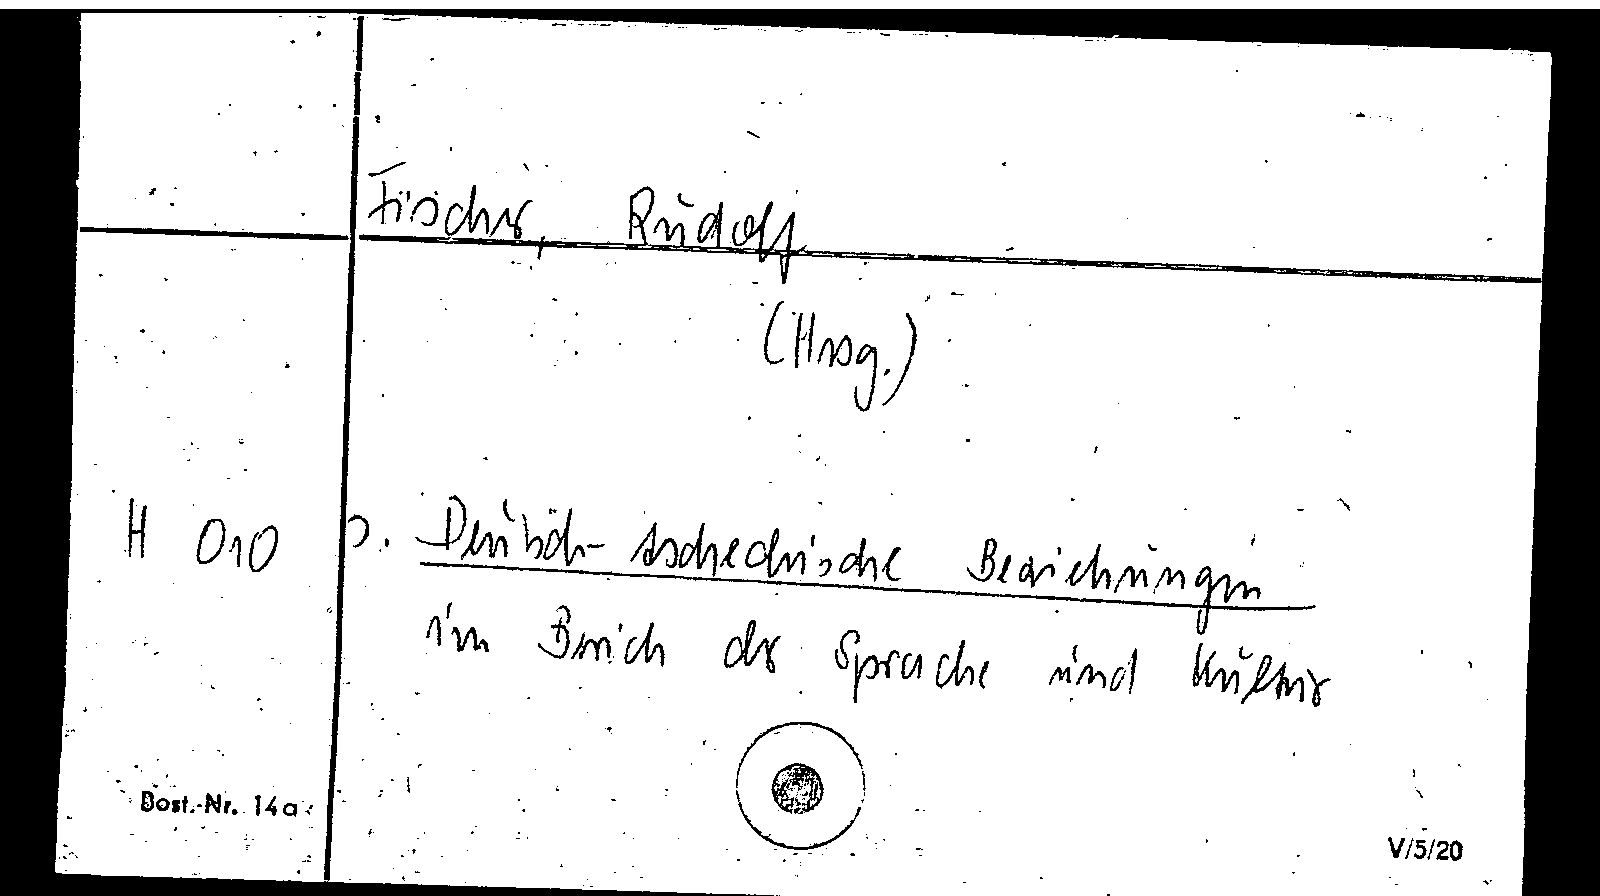 Fischer, Rudolf
(Hrsg.)
H 010 s. Deutsch-tschechische Beziehungen
im Bereich der Sprache und Kultur
Best.-Nr. 14a
V/5/20